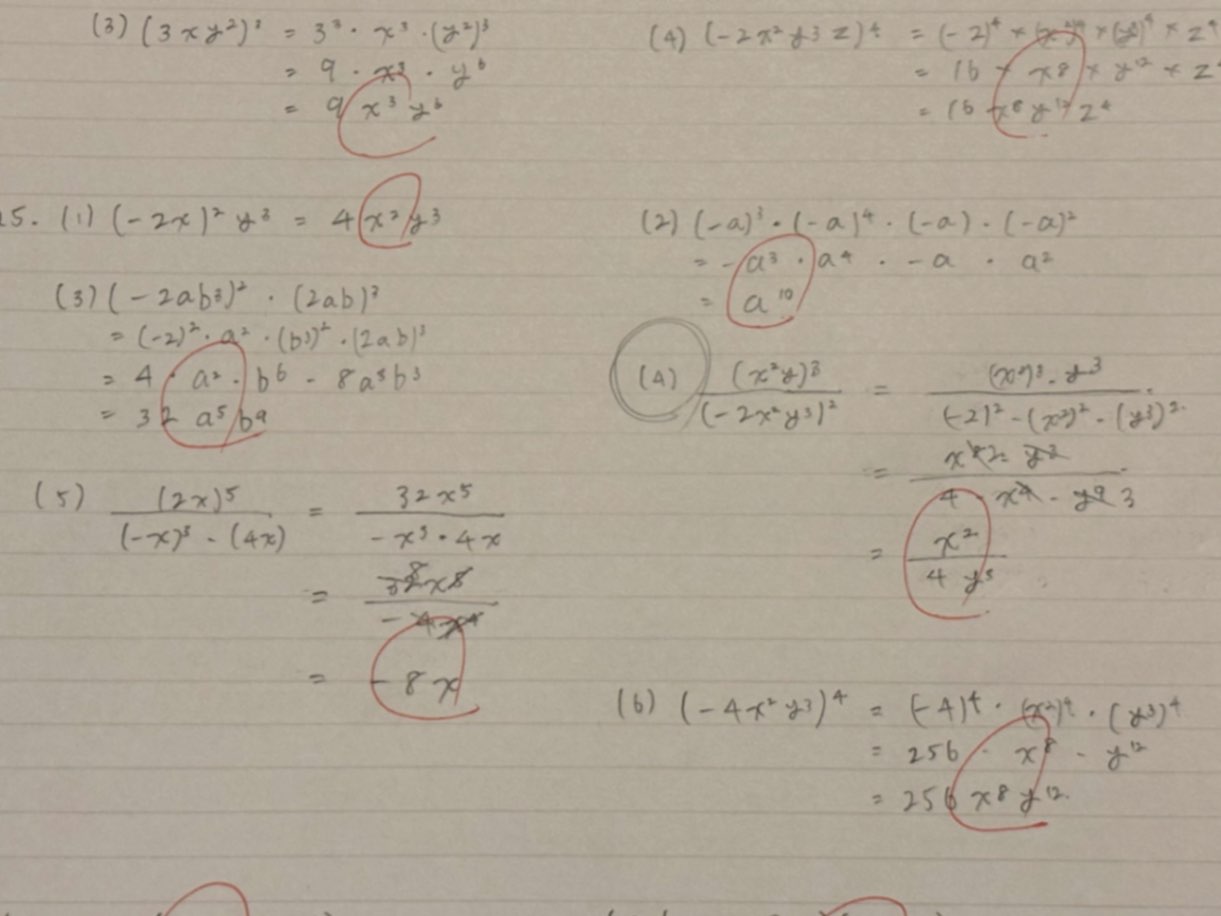 (3) (3xy²)³ = 3³ · x³ · (y²)³
= 9 · x³ · y⁶
= 9 x³ y⁶
(4) (-2x² y3 z)⁴ = (-2)⁴ × (x²)⁴ × (y³)⁴ × z⁴
= 16 × x8 × y¹² × z
= 16 x⁸ y¹² z⁴
15. (1) (-2x)² y³ = 4 x² y3
(2) (-a)³ · (-a)⁴ · (-a) · (-a)²
= -a³ · a⁴ · -a · a²
= a¹⁰
(3) (-2ab³)² · (2ab)³
= (-2)² · a² · (b³)² · (2ab)³
= 4 · a² · b⁶ - 8a³b³
= 32 a⁵ b⁹
(4) (x²y)³ / (-2x²y³)² = (x²)³ - y³ / (-2)² - (x²)² - (y³)²
=
= x² / 4 y³
(5) (2x)⁵ / (-x)³ - (4x) = 32x⁵ / -x³ · 4x
=
= -8x
(6) (-4x² y³)⁴ = (-4)⁴ · (x²)⁴ · (y³)⁴
= 256 · x⁸ - y¹²
= 256 x⁸ y¹².